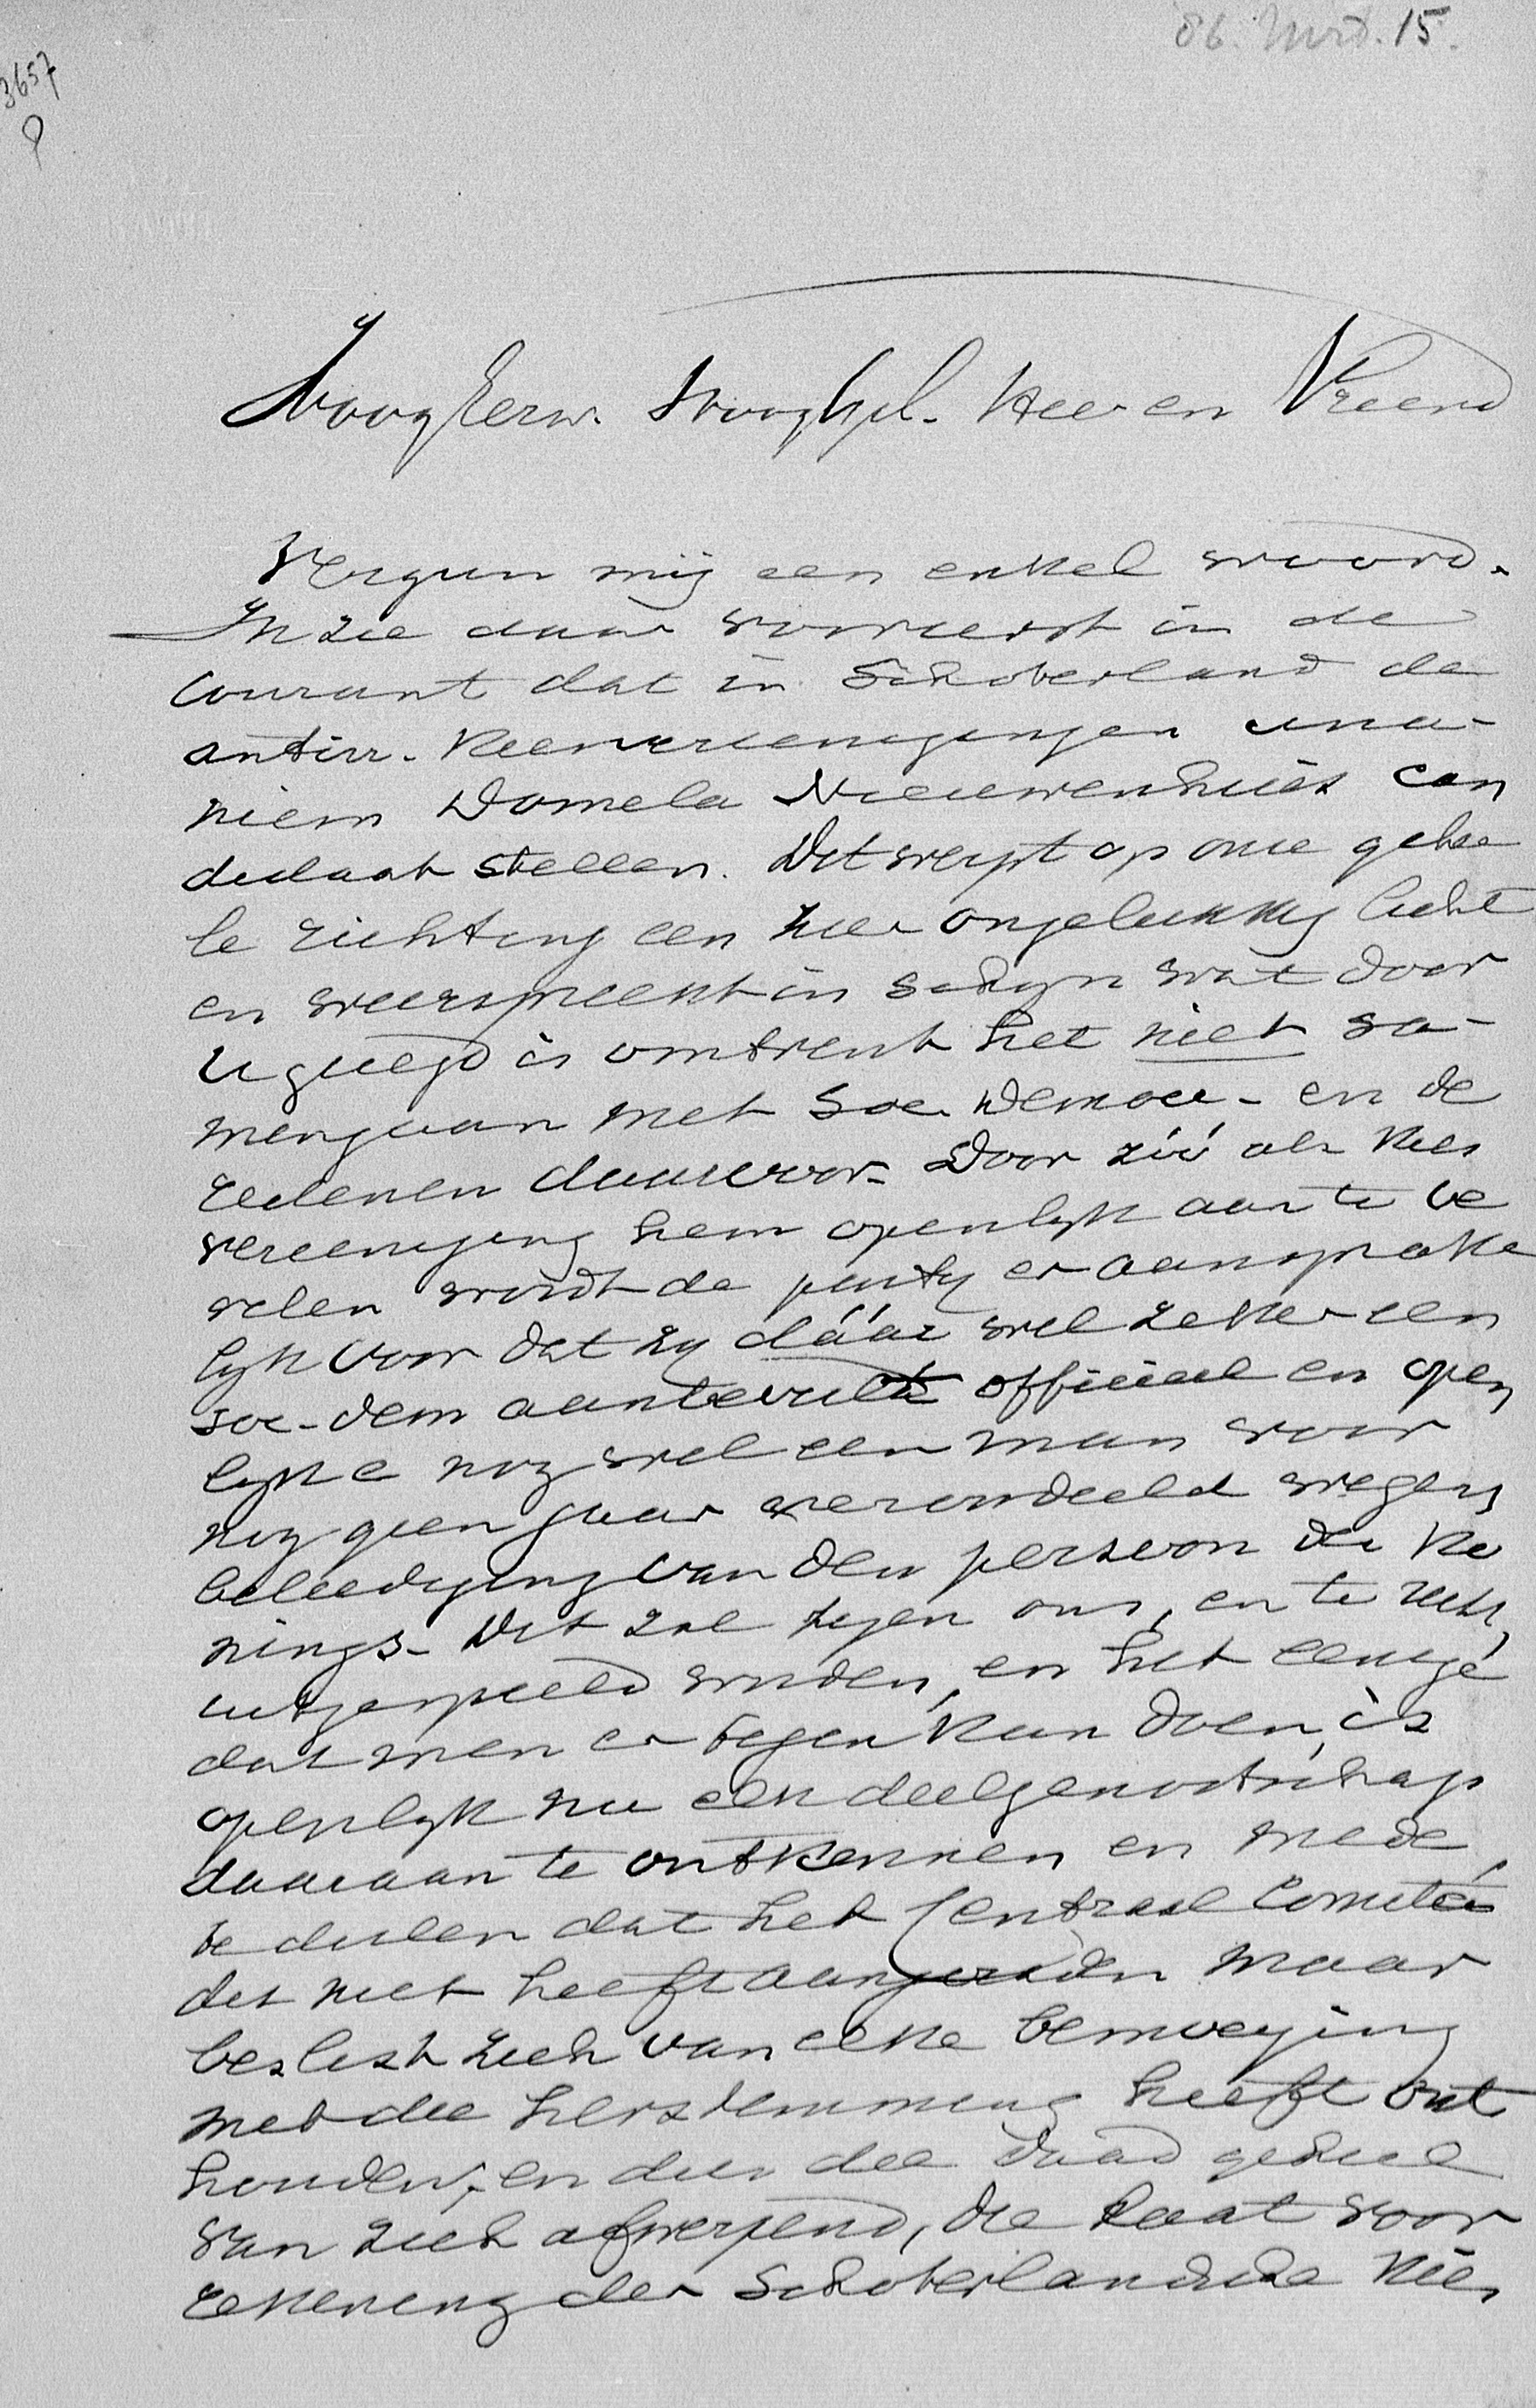 86. Mrt. 15.
3657
HoogEerw. HoogGel. Heer en Vriend
Vergun mij een enkel woord.
Ik zie daar vooreerst in de
Courant dat in Schoterland de
antirr. Kiesvereenigingen una-
niem Domela Nieuwenhuis can
didaat stellen. Dit werpt op onze gehee
le richting een zeer ongelukkig licht
en weerspreekt in schijn wat door
U gezegd is omtrent het niet sa-
mengaan met Soc. Democr. en de
redenen daarvoor. Door zóó als Kies
vereeniging hem openlijk aan te be
velen wordt de partij er aansprake
lijk voor dat zij dáár wel zeker een
soc-dem aanbeveelt officieel en open
lijk en nog wel een man voor
nog geen jaar veroordeeld wegens
beleediging van den persoon des Ko
nings. Dit zal tegen ons, en te recht,
uitgespeeld worden, en het eenige
dat men er tegen kan doen, is
openlijk nu elk deelgenootschap
daaraan te ontkennen en mede
te deelen dat het Centraal Comitée
dit niet heeft aangeraden maar
beslist zich van elke bemoeijing
met die herstemming heeft ont
houden, en dus die daad geheel
van zich afwerpend, die laat voor
rekening der Schoterlandsche Kies